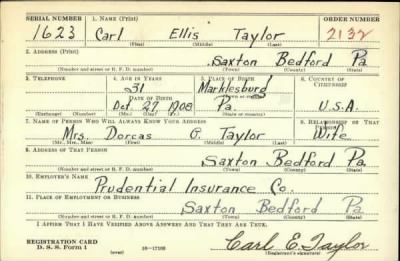 SERIAL NUMBER 1. NAME (Print) ORDER NUMBER
1623 Carl Ellis Taylor 2132
(First) (Middle) (Last)
2. ADDRESS (Print)
Saxton Bedford Pa
(Number and street or R. F. D. number) (Town) (County) (State)
3. TELEPHONE 4. AGE IN YEARS 5. PLACE OF BIRTH 6. COUNTRY OF CITIZENSHIP
31 Marklesburg
DATE OF BIRTH
Oct 27 1908 Pa. U.S.A.
(Mo.) (Day) (Yr.) (State or country)
7. NAME OF PERSON WHO WILL ALWAYS KNOW YOUR ADDRESS 8. RELATIONSHIP OF THAT PERSON
Mrs. Dorcas Taylor Wife
(Mr., Mrs., Miss) (First) (Middle) (Last)
9. ADDRESS OF THAT PERSON
Saxton Bedford Pa
(Number and street or R. F. D. number) (Town) (County) (State)
10. EMPLOYER'S NAME
Prudential Insurance Co.
11. PLACE OF EMPLOYMENT OR BUSINESS
Saxton Bedford Pa
(Number and street or R. F. D. number) (Town) (County) (State)
I AFFIRM THAT I HAVE VERIFIED ABOVE ANSWERS AND THAT THEY ARE TRUE.
REGISTRATION CARD
D. S. S. Form 1 (over) Carl E. Taylor
(Registrant's signature)